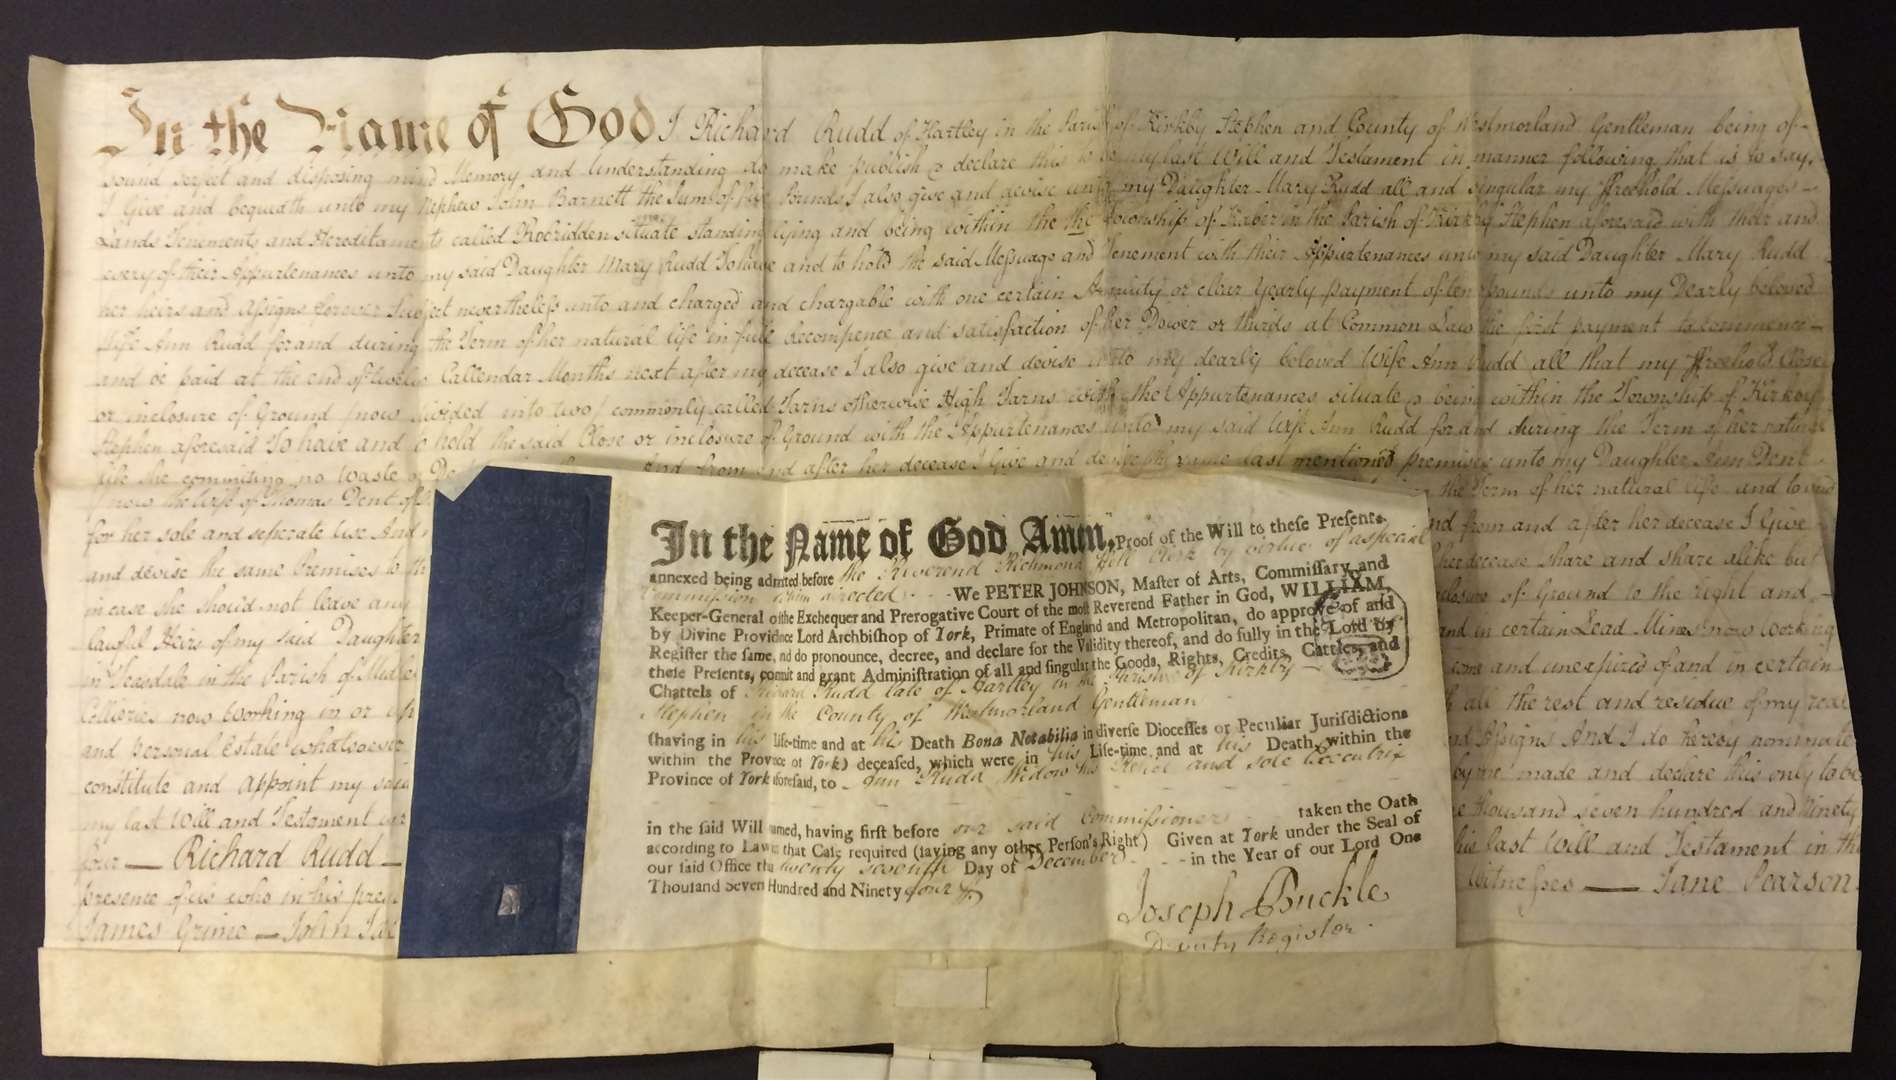 In the Name of God I Richard Rudd of Hartley in the Parish of Kirkby Stephen and County of Westmorland Gentleman being of
sound perfect and disposing mind Memory and Understanding do make publish & declare this to be my last Will and Testament in manner following that is to say,
I Give and bequeath unto my Nephew John Barnett the Sum of five Pounds I also give and devise unto my Daughter Mary Rudd all and singular my ffreehold Messuages
Lands Tenements and Hereditaments called situate standing lying and being within the the Township of Kaber in the Parish of Kirkby Stephen aforesaid with their and
every of their Appurtenances unto my said Daughter Mary Rudd To have and to hold the said Messuage and Tenement with their Appurtenances unto my said Daughter Mary Rudd
her heirs and Assigns forever Subject nevertheless unto and charged and chargable with one certain Annuity or clear Yearly payment of ten Pounds unto my Dearly beloved
Wife Ann Rudd for and during the Term of her natural life in full Recompence and satisfaction of her Dower or thirds at Common Law the first payment to commence
and be paid at the end of twelve Callendar Months next after my decease I also give and devise unto my dearly beloved Wife Ann Rudd all that my ffreehold Close
or inclosure of Ground now divided into two commonly called Tarns otherwise High Tarns with the Appurtenances situate & being within the Township of Kirkby
Stephen aforesaid To have and to hold the said Close or inclosure of Ground with the Appurtenances unto my said Wife Ann Rudd for and during the Term of her natural
life she commiting no Waste And from and after her decease I Give and devise the same last mentioned premises unto my Daughter Ann Dent
now the Wife of Thomas Dent of the Term of her natural life and to and
for her sole and seperate use And nd from and after her decease I Give
and devise the same Premises to her decease share and share alike but
in case she should not leave any closure of Ground to the right and
lawful Heirs of my said Daughter and in certain Lead Mines now Working
in Teesdale in the Parish of come and unexpired of and in certain
Collieries now Working in or all the rest and residue of my real
and Personal Estate whatsoever nd Assigns And I do hereby nominate
constitute and appoint my said by me made and declare this only to be
my last Will and Testament e thousand seven hundred and Ninety
four — Richard Rudd — his last Will and Testament in the
presence of us who in his Witnesses — Jane Pearson
James Grime — John
In the Name of God Amen. Proof of the Will to these Presents
annexed being admitted before the Reverend Richmond Clerk by virtue of a special
Commission directed We PETER JOHNSON, Master of Arts, Commissary and
Keeper-General of the Exchequer and Prerogative Court of the most Reverend Father in God, WILLIAM,
by Divine Providnce Lord Archbishop of York, Primate of England and Metropolitan, do approve of and
Register the same, nd do pronounce, decree, and declare for the Validity thereof, and do fully in the Lord by
these Presents, commit and grant Administration of all and singular the Goods, Rights, Credits, Cattles, and
Chattels of Richard Rudd late of Hartley in the Parish of Kirkby
Stephen in the County of Westmorland Gentleman
(having in his life-time and at his Death Bona Notabilia in diverse Diocesses or Peculiar Jurisdictions
within the Province of York) deceased, which were in his Life-time and at his Death within the
Province of York aforesaid, to Ann Rudd Widow his Relict and sole Executrix
in the said Will named, having first before our said Commissioner taken the Oath
according to Law in that Case required (saving any other Person's Right) Given at York under the Seal of
our said Office the twenty seventh Day of December in the Year of our Lord One
Thousand Seven Hundred and Ninety four
Joseph Buckle
Deputy Register.